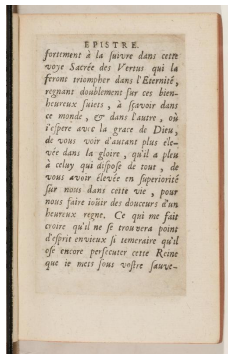 EPISTRE.
fortement à la ſuivre dans cette
voye Sacrée des Vertus qui la
feront triompher dans l'Eternité,
regnant doublement ſur ces bien-
heureux ſuiets, à ſçavoir dans
ce monde, & dans l'autre, où
i'eſpere avec la grace de Dieu,
de vous voir d'autant plus éle-
vée dans la gloire, qu'il a pleu
à celuy qui diſpoſe de tout, de
vous avoir élevée en ſuperiorité
ſur nous dans cette vie, pour
nous faire ioüir des douceurs d'un
heureux regne. Ce qui me fait
croire qu'il ne ſe trouvera point
d'eſprit envieux ſi temeraire qu'il
oſe encore perſecuter cette Reine
que ie mets ſous voſtre ſauve-